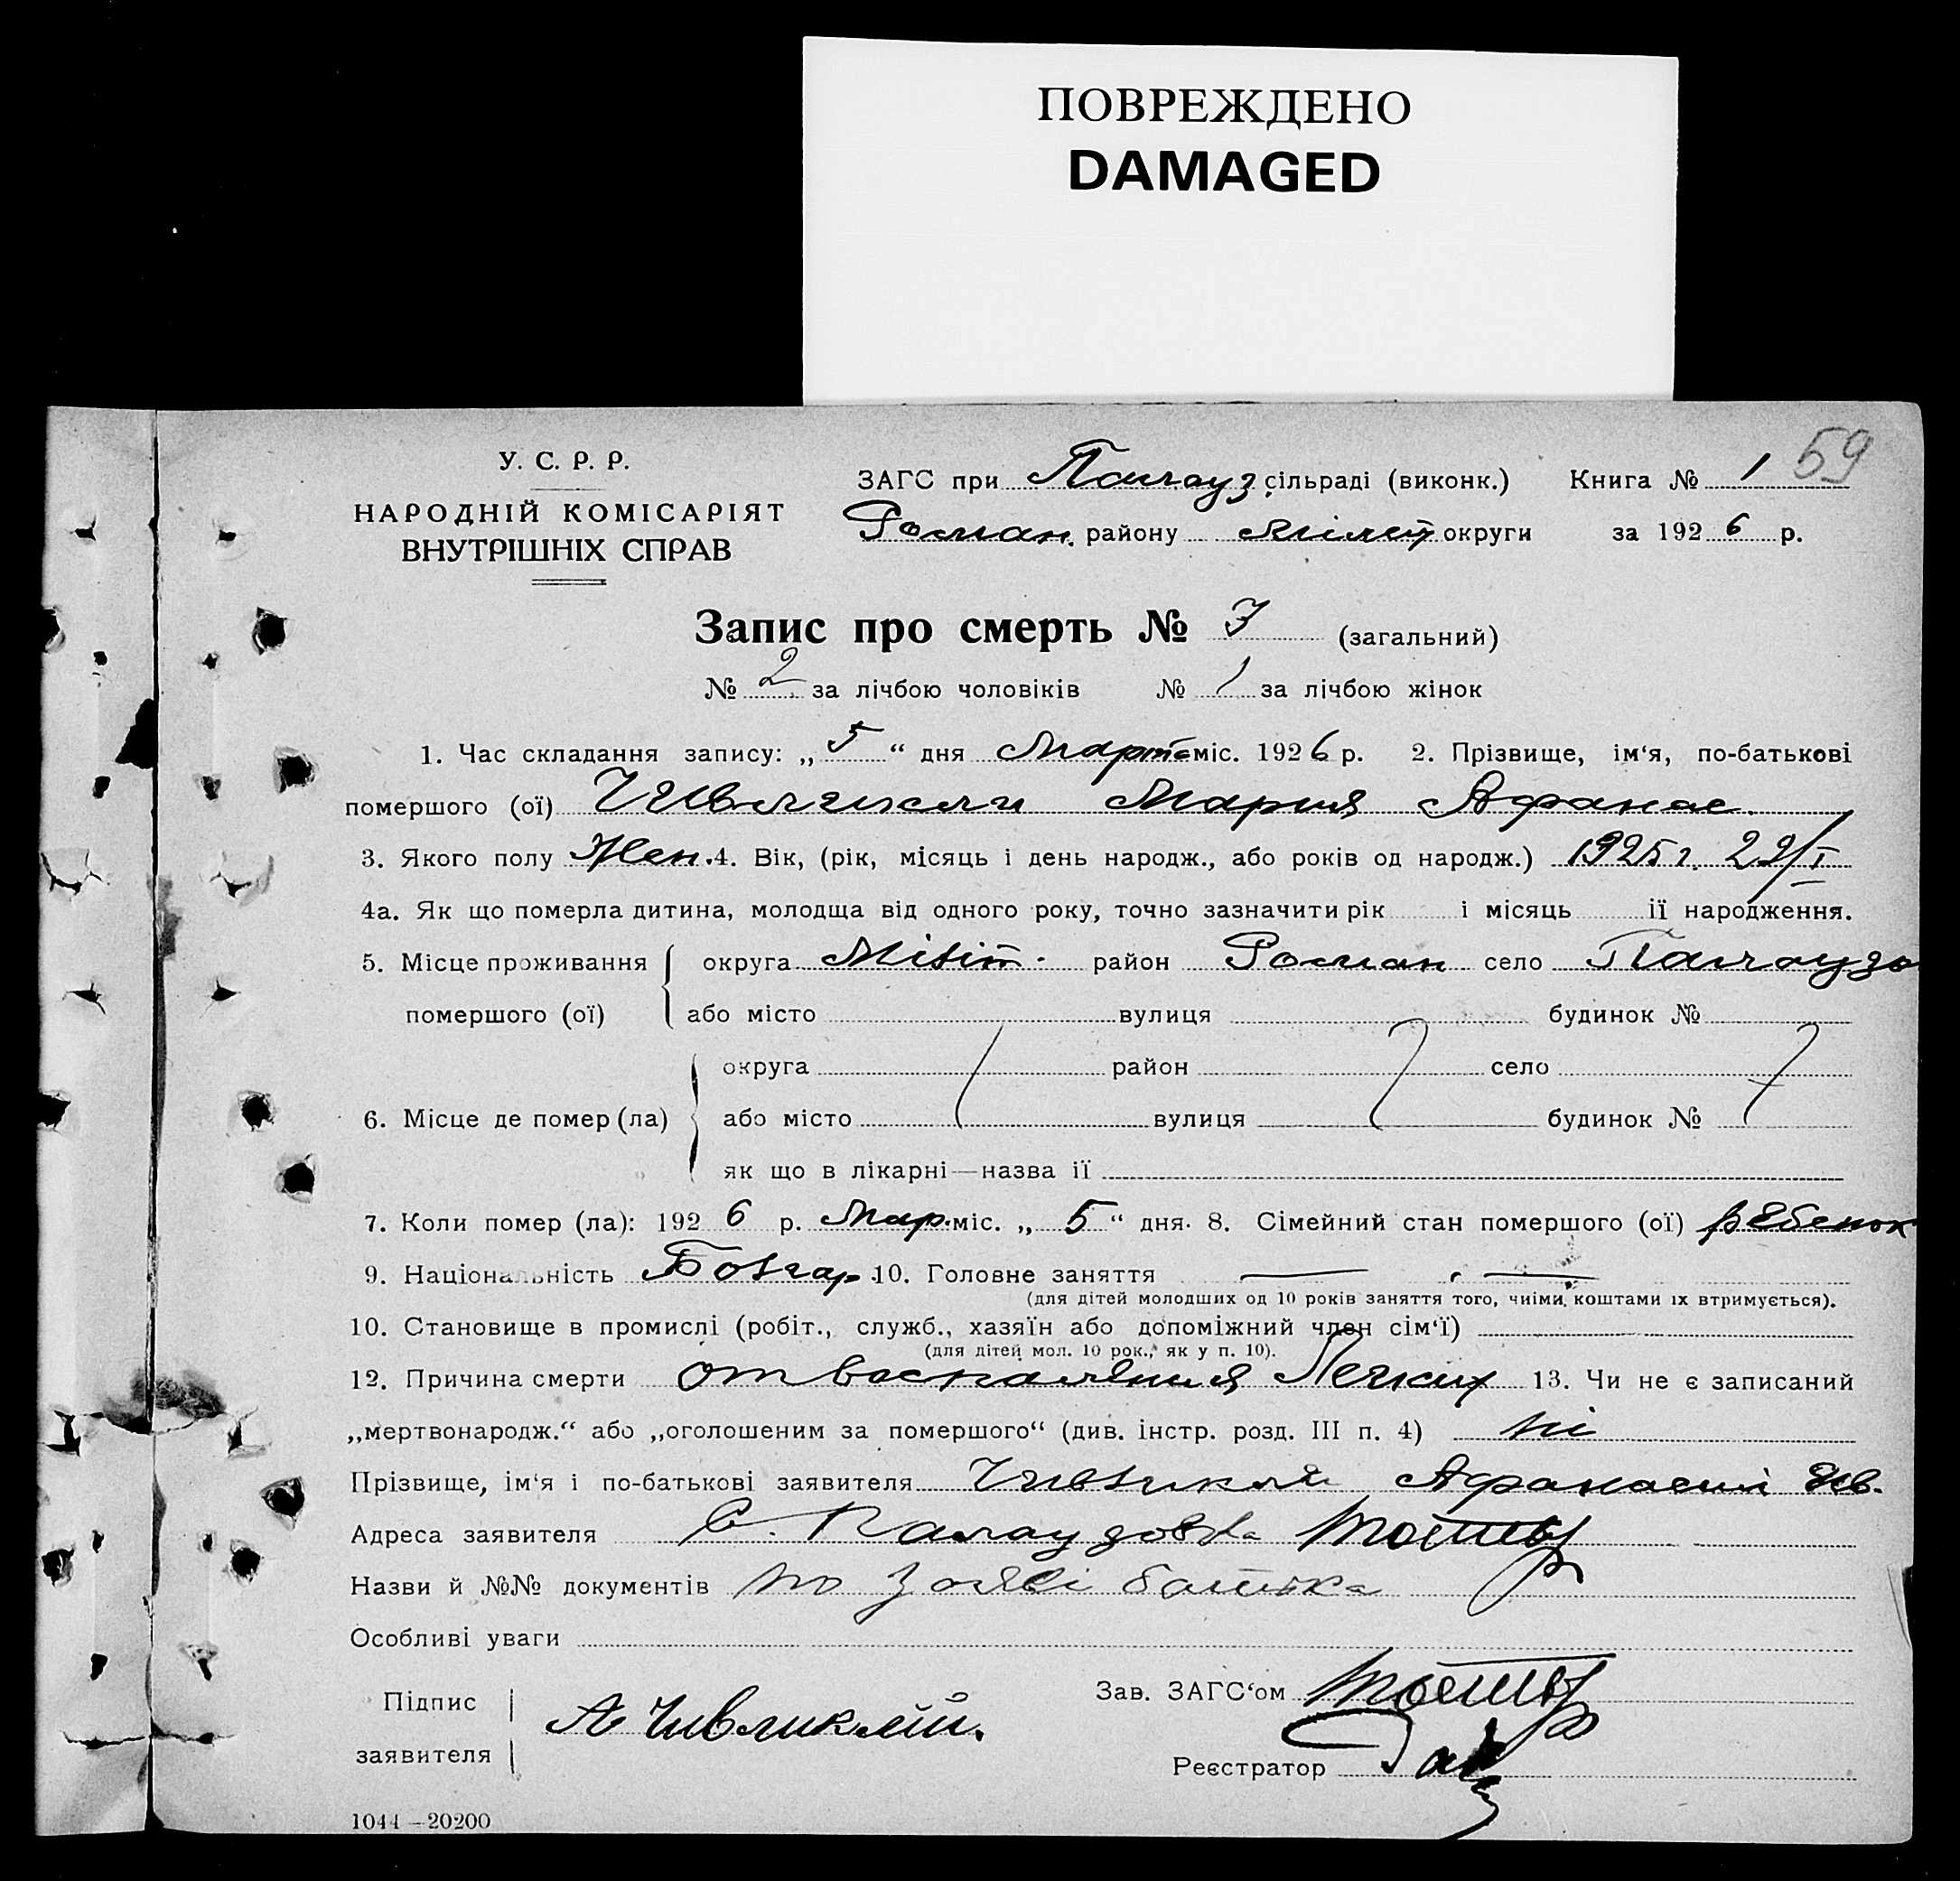 ПОВРЕЖДЕНО
DAMAGED
59
У. С. Р. Р.
НАРОДНІЙ КОМІСАРІЯТ
ВНУТРІШНІХ СПРАВ
ЗАГС при Палауз. сільраді (виконк.) Книга № 1
Роман. району Міліт округи за 1926 р.
Запис про смерть № 3 (загальний)
№ 2 за лічбою чоловіків № 1 за лічбою жінок
1. Час складання запису: „5“ дня Марта міс. 1926 р. 2. Прізвище, ім‘я, по-батькові
помершого (ої) Чивликли Мария Афанас.
3. Якого полу Жен. 4. Вік, (рік, місяць і день народж., або років од народж.) 1925 г. 22/I
4а. Як що померла дитина, молодща від одного року, точно зазначити рік і місяць її народження.
5. Місце проживання округа Міліт. район Роман село Палаузо
помершого (ої) або місто вулиця будинок №
округа район село
6. Місце де помер (ла) або місто вулиця будинок №
як що в лікарні—назва її
7. Коли помер (ла): 1926 р. Мар. міс. „5“ дня. 8. Сімейний стан помершого (ої) ребенок
9. Національність Болгар. 10. Головне заняття — —
(для дітей молодших од 10 років заняття того, чиїми коштами їх втримується).
10. Становище в промислі (робіт., служб., хазяїн або допоміжний член сім‘ї)
(для дітей мол. 10 рок., як у п. 10).
12. Причина смерти от воспаления Легких 13. Чи не є записаний
„мертвонародж.“ або „оголошеним за помершого“ (див. інстр. розд. III п. 4) ні
Прізвище, ім‘я і по-батькові заявителя Чивликли Афанасий Ив.
Адреса заявителя С. Палаузовка
Назви й №№ документів по заяві батька
Особливі уваги
Підпис
заявителя А Чивликлий.
Зав. ЗАГС‘ом
Реєстратор
1044—20200